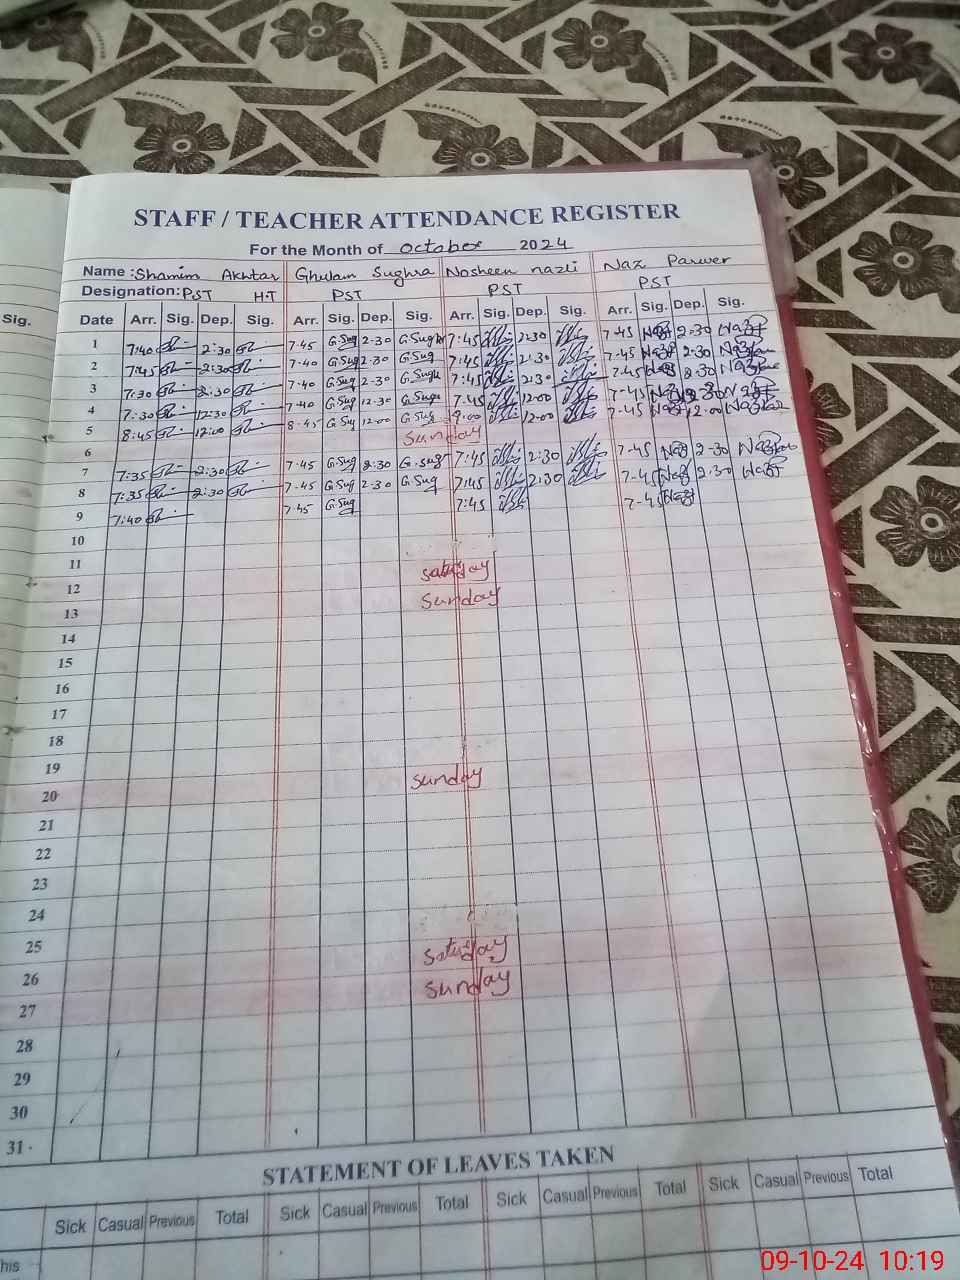 STAFF / TEACHER ATTENDANCE REGISTER
For the Month of October 2024
Name : Shamim Akhtar Ghulam Sughra Nosheen nazli Naz Parwer
Designation: PST H.T PST PST PST
Sig. Date Arr. Sig. Dep. Sig. Arr. Sig. Dep. Sig. Arr. Sig. Dep. Sig. Arr. Sig. Dep. Sig.
1 7:40 2:30 7-45 G.Sug 2-30 G.Sugh 7:45 2:30 7-45 Naz 2-30
2 7:45 2:30 7-40 G.Sug 2-30 G.Sug 7:45 2:30 7-45 2-30
3 7:30 2:30 7-40 G.Sug 2-30 G.Sugh 7:45 2:30 7-45 2-30
4 7:30 12:30 7-40 G.Sug 12-30 G.Sug 7:45 12:00 7-45
5 8:45 12:00 8-45 G.Sug 12-00 G.Sug 12:00 7-45 12-00
6 Sunday
7 7:35 2:30 7-45 G.Sug 2:30 G.Sug 7:45 2:30 7-45 Naz 2-30
8 7:35 2:30 7-45 G.Sug 2-30 G.Sug 7:45 2:30 7-45 Naz 2-30
9 7:40 7-45 G.Sug 7:45 7-45 Naz
10
11
12 Saturday
13 Sunday
14
15
16
17
18
19
20 Sunday
21
22
23
24
25
26 Saturday
27 Sunday
28
29
30
31
STATEMENT OF LEAVES TAKEN
Sick Casual Previous Total Sick Casual Previous Total Sick Casual Previous Total Sick Casual Previous Total
his
09-10-24 10:19